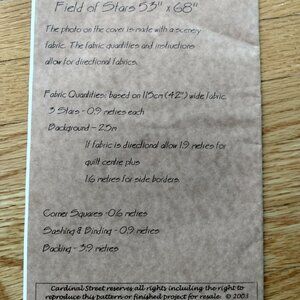 Field of Stars 53" x 68"
The photo on the cover is made with a scenery
fabric. The fabric quantities and instructions
allow for directional fabrics.
Fabric Quantities: based on 115cm (42") wide fabric
3 Stars - 0.9 metres each
Background - 2.5m
If fabric is directional allow 1.9 metres for
quilt centre plus
1.6 metres for side borders.
Corner Squares - 0.6 metres
Sashing & Binding - 0.9 metres
Backing - 3.9 metres
Cardinal Street reserves all rights including the right to
reproduce this pattern or finished project for resale. © 2003